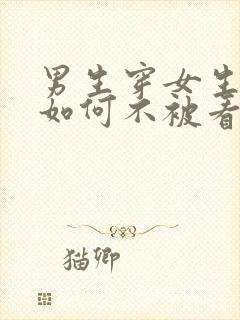 男生穿女生
如何不被看
猫卿